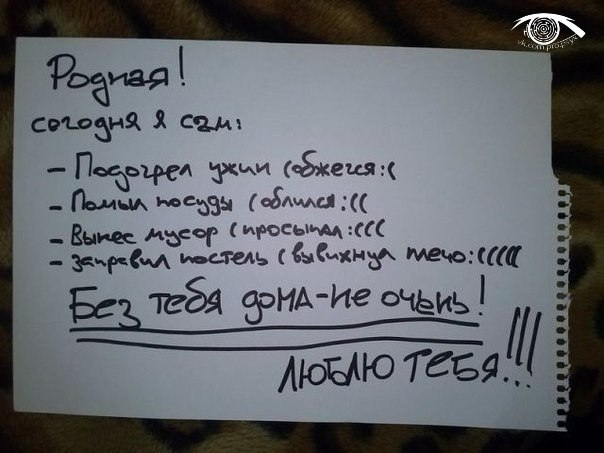 vk.com/pro.psyx
Родная!
сегодня я сам:
- Подогрел ужин (обжегся:(
- Помыл посуды (облился:((
- Вынес мусор (просыпал:(((
- заправил постель (вывихнул плечо:(((((
Без тебя дома-не очень!
ЛЮБЛЮ ТЕБЯ!!!...